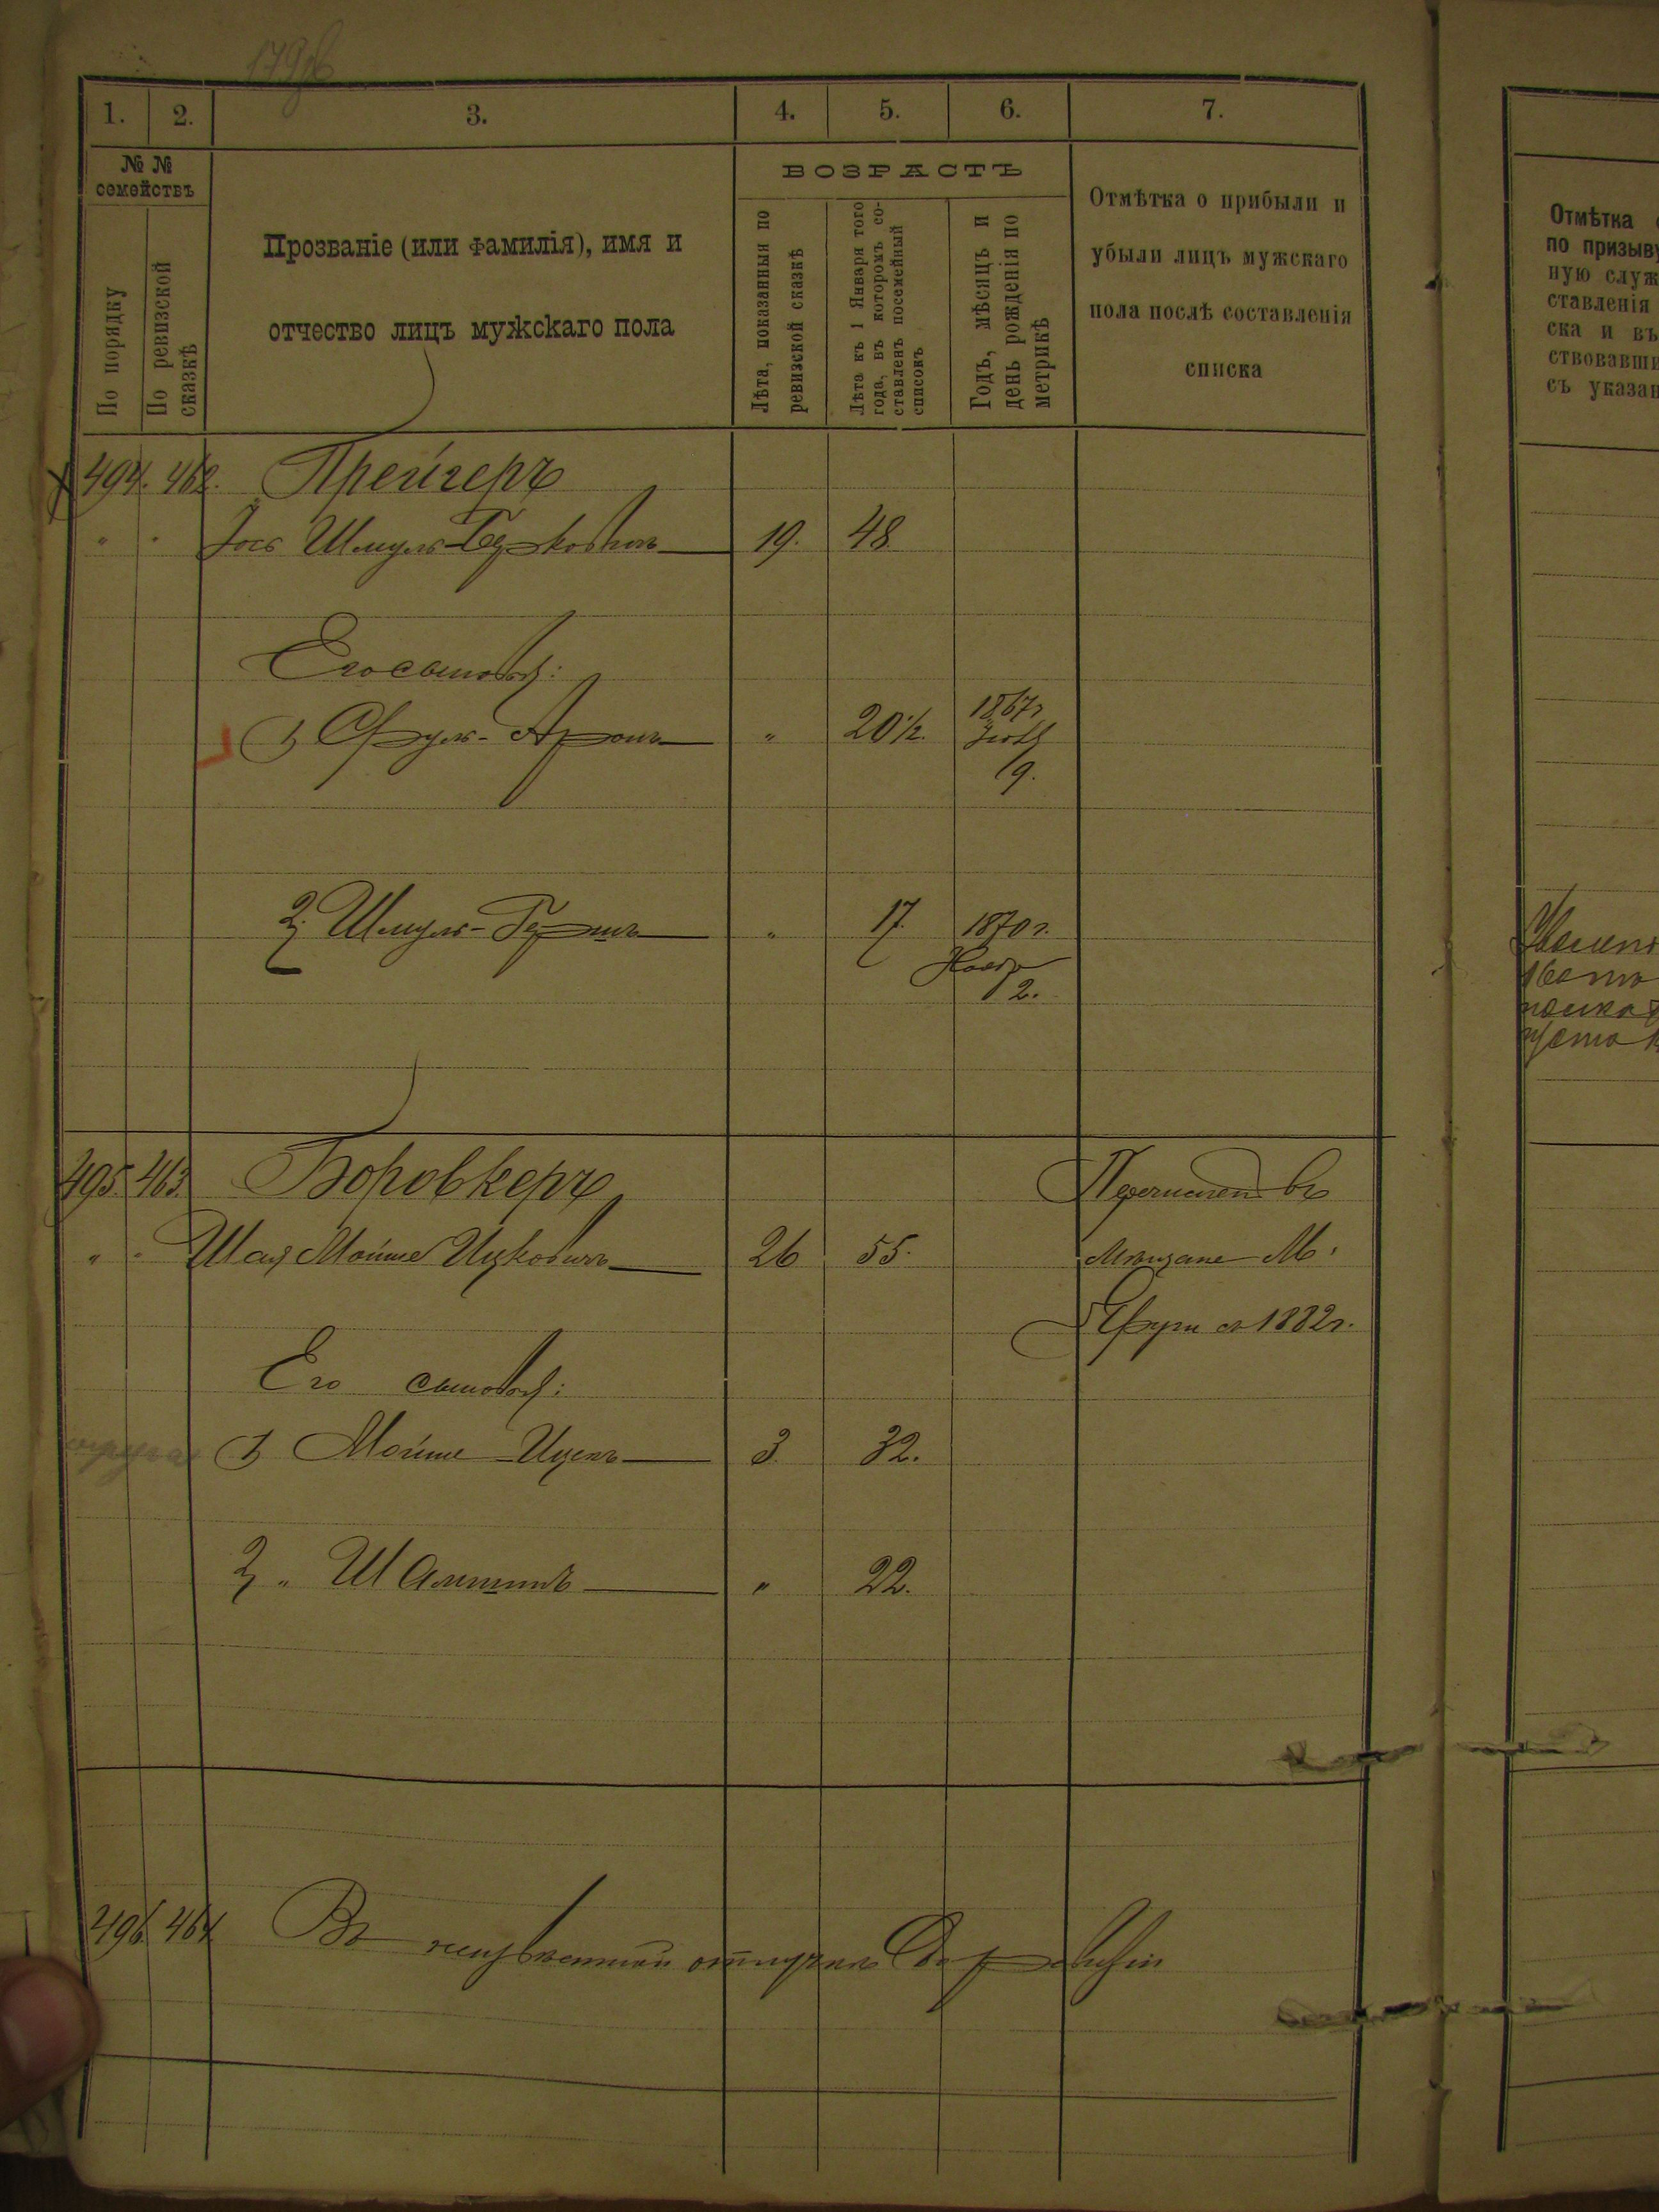 179об
1. 2. 3. 4. 5. 6. 7.
№ №
семействъ
По порядку
По ревизской сказкѣ
Прозваніе (или фамилія), имя и
отчество лицъ мужскаго пола
ВОЗРАСТЪ
Лѣта, показанныя по
ревизской сказкѣ
Лѣта къ 1 Января того
года, въ которомъ со-
ставленъ посемейный
списокъ
Годъ, мѣсяцъ и
день рожденія по
метрикѣ
Отмѣтка о прибыли и
убыли лицъ мужскаго
пола послѣ составленія
списка
494. 462. Прейгеръ
" " Іось Шмуль-Берковичъ 19. 48.
Его сыновья:
1) Сруль-Аронъ " 20½. 1867г
9.
2) Шмуль-Гершъ " 17. 1870 г.
Ноябр
2.
495. 463. Боровкеръ Перечисленъ въ
" " Шая Мойше Ицковичъ 26 55. мѣщане М.
1882г.
Его сыновья:
1) Мойше-Ицекъ 3. 32.
2) " " 22.
496. 464. Въ неизвѣстной отлучкѣ до ревизіи
Отмѣтка
по призыву
ную служ
ставленія
ска и въ
ствовавши
съ указан